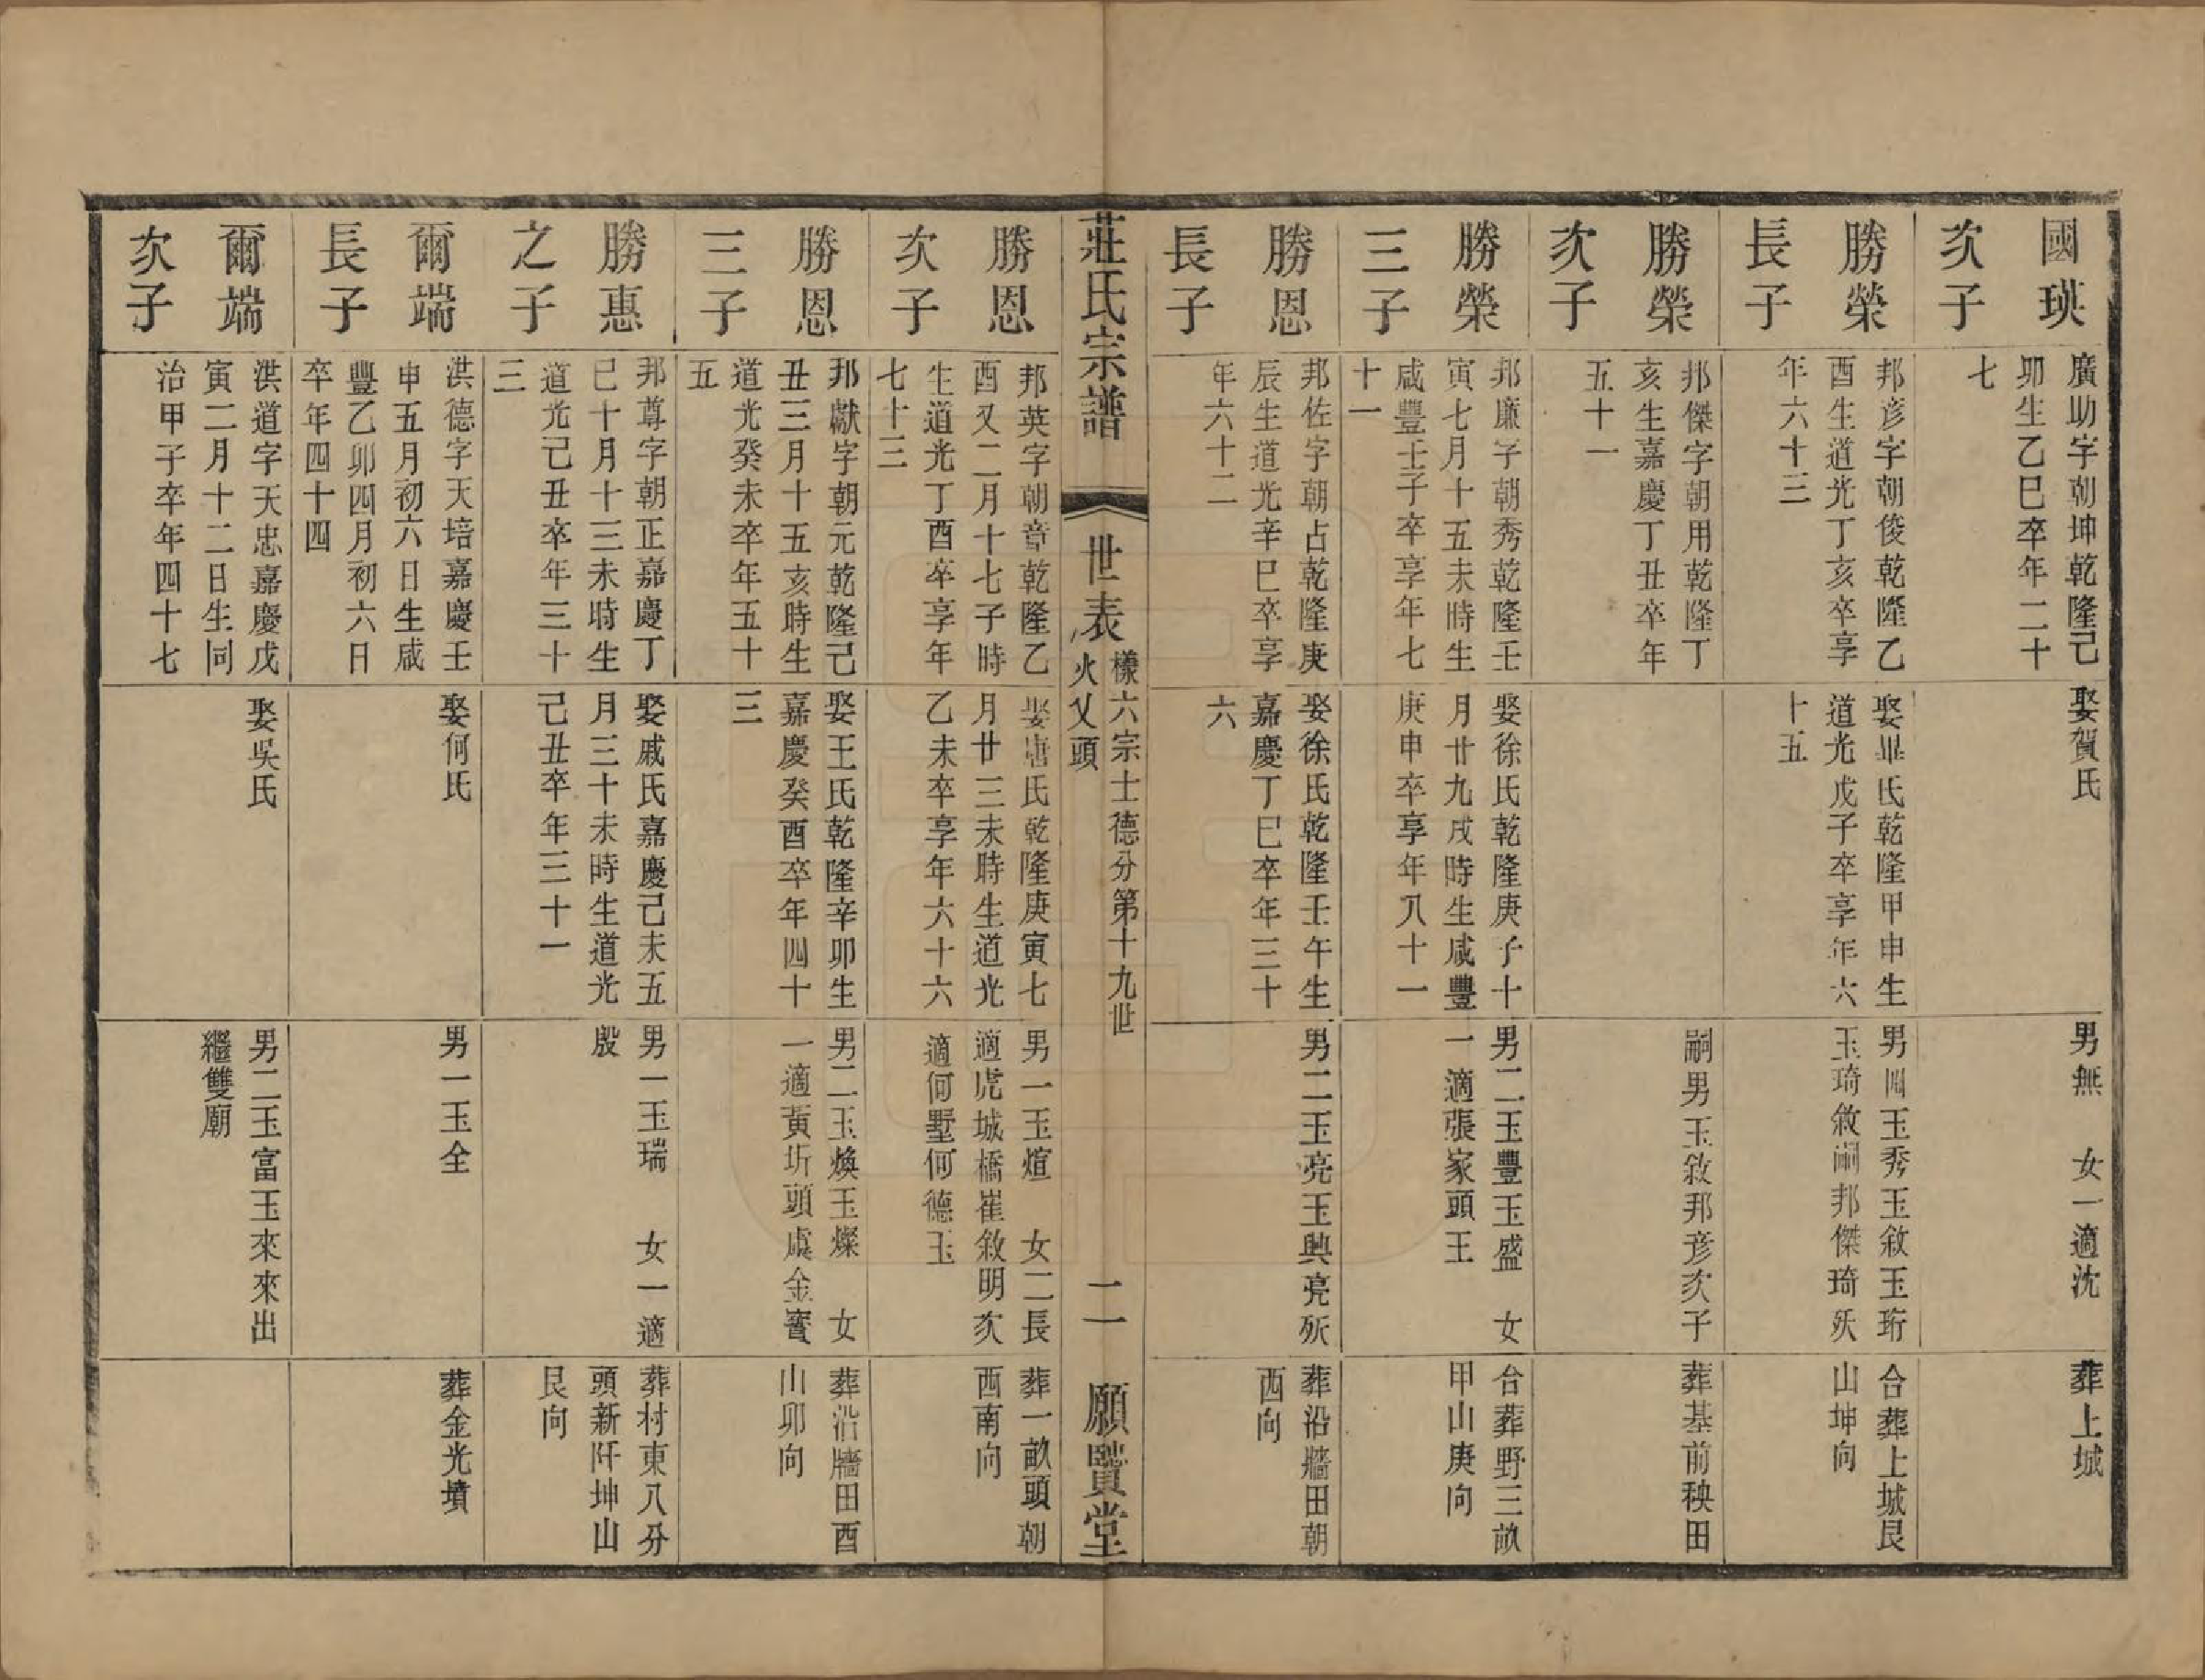 國瑛
次子
廣助字朝坤乾隆己
卯生乙巳卒年二十
七
娶賀氏
男無　女一適沈
葬上城
勝榮
長子
邦彥字朝俊乾隆乙
酉生道光丁亥卒享
年六十三
娶畢氏乾隆甲申生
道光戊子卒享年六
十五
男四玉秀玉敘玉珩
玉琦敘嗣邦傑琦殀
合葬上城艮
山坤向
勝榮
次子
邦傑字朝用乾隆丁
亥生嘉慶丁丑卒年
五十一
嗣男玉敘邦彥次子
葬基前秧田
勝榮
三子
邦廉字朝秀乾隆壬
寅七月十五未時生
咸豐壬子卒享年七
十一
娶徐氏乾隆庚子十
月廿九戌時生咸豐
庚申卒享年八十一
男二玉豐玉盛　女
一適張家頭王
合葬野三畝
甲山庚向
勝恩
長子
邦佐字朝占乾隆庚
辰生道光辛巳卒享
年六十二
娶徐氏乾隆壬午生
嘉慶丁巳卒年三十
六
男二玉亮玉興亮殀
葬沿牆田朝
西向
莊氏宗譜
世表
樣六宗士德分第十九世
火乂頭
二
願賢堂
勝恩
次子
邦英字朝章乾隆乙
酉又二月十七子時
生道光丁酉卒享年
七十三
娶唐氏乾隆庚寅七
月廿三未時生道光
乙未卒享年六十六
男一玉煊　女二長
適虎城橋崔敘明次
適何墅何德玉
葬一畝頭朝
西南向
勝恩
三子
邦獻字朝元乾隆己
丑三月十五亥時生
道光癸未卒年五十
五
娶王氏乾隆辛卯生
嘉慶癸酉卒年四十
三
男二玉煥玉燦　女
一適黃圻頭虞金寶
葬沿牆田酉
山卯向
勝惠
之子
邦尊字朝正嘉慶丁
巳十月十三未時生
道光己丑卒年三十
三
娶戚氏嘉慶己未五
月三十未時生道光
己丑卒年三十一
男一玉瑞　女一適
殷
葬村東八分
頭新阡坤山
艮向
爾端
長子
洪德字天培嘉慶壬
申五月初六日生咸
豐乙卯四月初六日
卒年四十四
娶何氏
男一玉全
葬金光墳
爾端
次子
洪道字天忠嘉慶戊
寅二月十二日生同
治甲子卒年四十七
娶吳氏
男二玉富玉來來出
繼雙廟